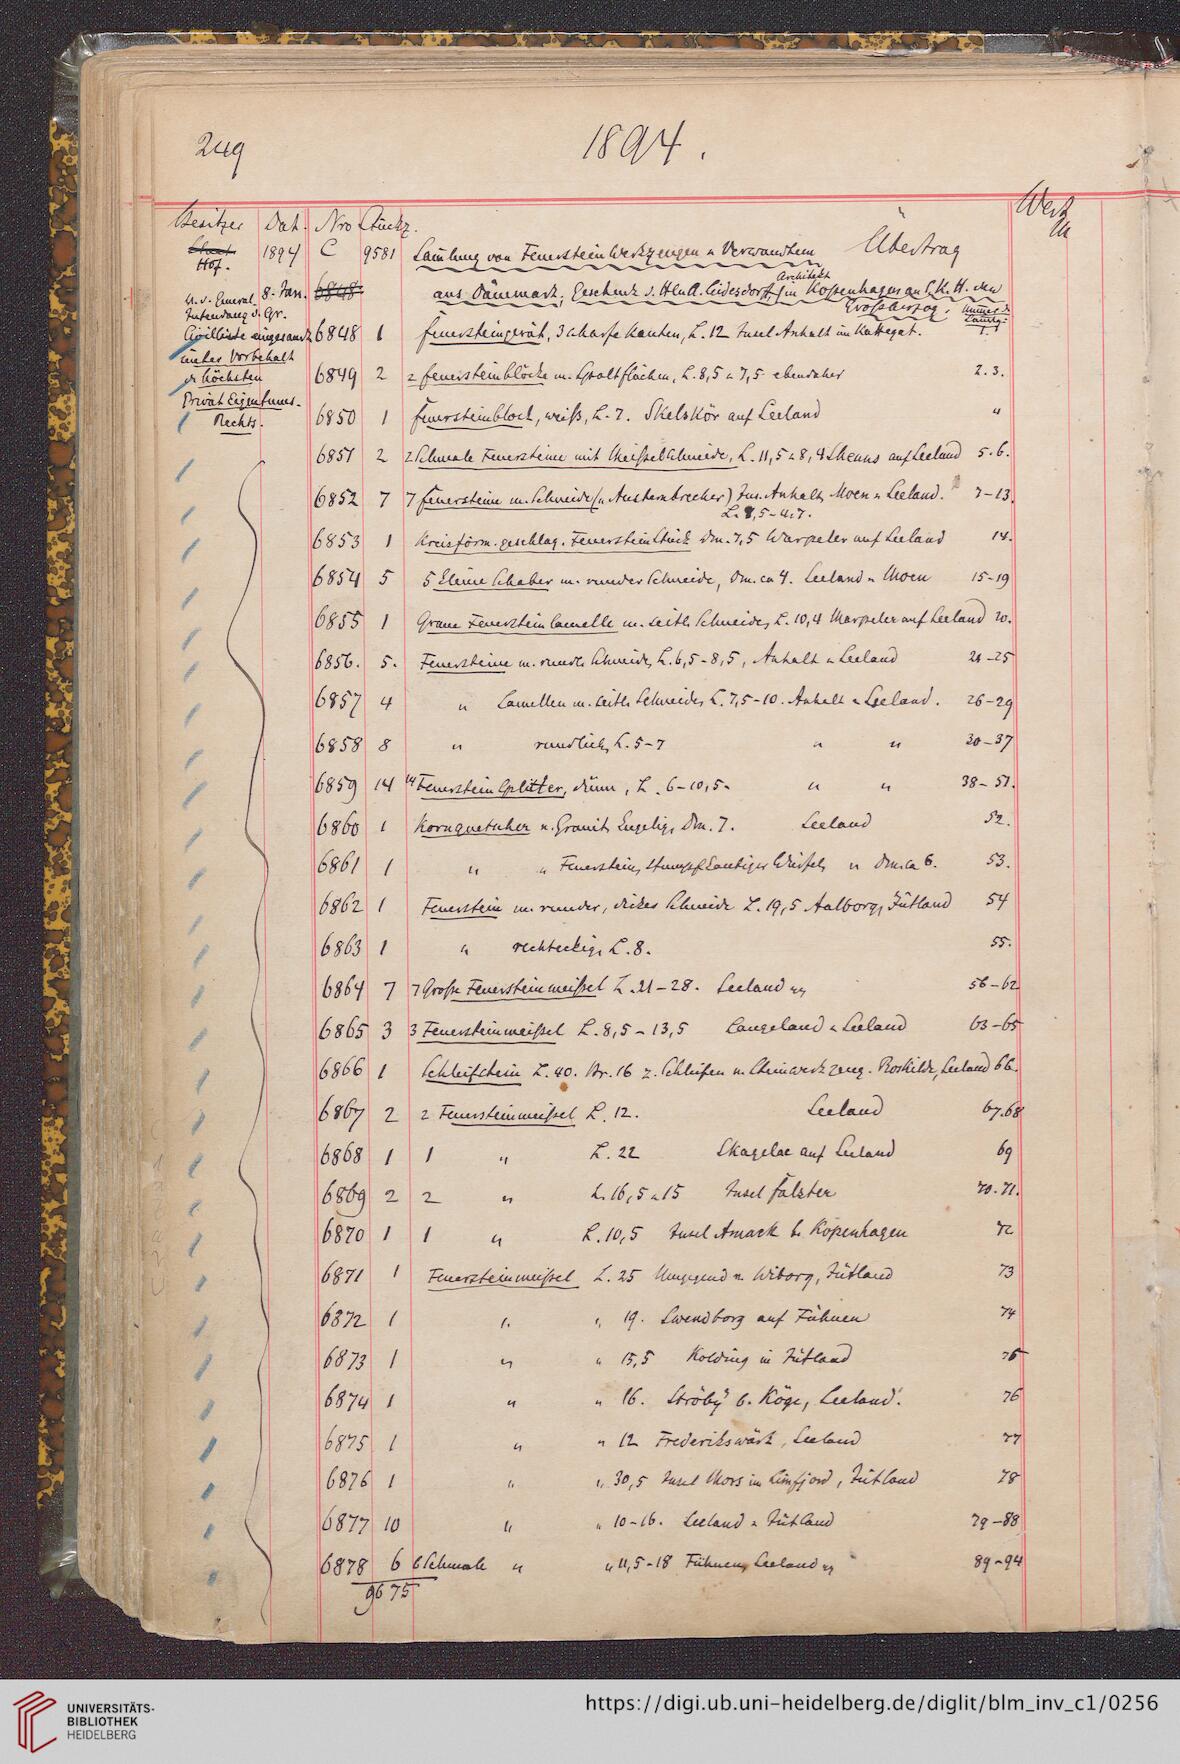 249
1894.
Besitzer Dat. Nro Stückz. Werth
M
Staat 1894 C 9581 Samlung von Feuerstein Werkzeugen u. Verwandtem Übertrag
Hof.
8. Jan. 6848. aus Dänemark, Geschenk v. Hln A. Leidesdorff, Architekt in Kopenhagen an S. K. H. den
Großherzog.
v. d. General
Intendanz d. Gr.
Civilliste eingesandt 6848 1 Feuersteingerät, 3 scharfe Kanten, L. 12 Insel Anhalt im Kattegat. 1.
unter Vorbehalt
d. höchsten 6849 2 2 Feuersteinblöcke m. Spaltflächen, L. 8,5 u 7,5 ebendaher 2.3.
Privat Eigentums-
Rechts. 6850 1 Feuersteinblock, weiß, L. 7. Skelskör auf Seeland "
6851 2 2 Schmale Feuersteine mit Meißelschneide, L. 11,5 u 8,4 auf Seeland 5.6.
6852 7 7 Feuersteine m. Schneide (u Austernbrecher) Ins. Anhalt, Moen u Seeland. 7-13.
6853 1 Kreisförm. geschlag. Feuerstein Stück Dm. 7,5 Warpelev auf Seeland 14.
6854 5 5 kleine Schaber m. runder Schneide, Dm. ca 4. Seeland u Moen 15-19
6855 1 Graue Feuerstein Lamelle m. seitl. Schneide, L. 10,4 Warpelev auf Seeland 20.
6856. 5. Feuersteine m. rundl. Schneide, L. 6,5-8,5, Anhalt u Seeland 21-25
6857 4 " Lamellen m. seitl. Schneide, L. 7,5-10. Anhalt u Seeland. 26-29
6858 8 " rundlich, L. 5-7 " " 30-37
6859 14 14 Feuerstein Splitter, dünn, L. 6-10,5. " " 38-51.
6860 1 Kornquetscher v. Granit, kugelig, Dm. 7. Seeland 52.
6861 1 " " Feuerstein, stumpfkantiger Würfel, " Dm. ca 6. 53.
6862 1 Feuerstein m. runder, dicker Schneide L. 19,5 Aalborg, Jütland 54
6863 1 " rechteckig, L. 8. 55.
6864 7 7 Große Feuersteinmeißel L. 21-28. Seeland 56-62
6865 3 3 Feuersteinmeißel L. 8,5-13,5 Langeland u Seeland 63-65
6866 1 Schleifstein L. 40. Br. 16 z. Schleifen v. Steinwerkzeug. Roskilde, Seeland 66.
6867 2 2 Feuersteinmeißel L. 12. Seeland 67.68
6868 1 1 " L. 22 auf Seeland 69
6869 2 2 " L. 16,5 u 15 Insel Falster 70.71.
6870 1 1 " L. 10,5 Insel Amack b. Kopenhagen 72
6871 1 Feuersteinmeißel L. 25 Umgegend v. Wiborg, Jütland 73
6872 1 " " 19. Swendborg auf Fühnen 74
6873 1 " " 15,5 Kolding in Jütland 75
6874 1 " " 16. Ströby b. Köge, Seeland. 76
6875 1 " " 12 Frederikswärk, Seeland 77
6876 1 " " 30,5 Insel Mors im Limfjord, Jütland 78
6877 10 " " 10-16. Seeland u Jütland 79-88
6878 6 6 Schmale " " 11,5-18 Fühnen, Seeland 89-94
9675
UNIVERSITÄTS-
BIBLIOTHEK
HEIDELBERG
https://digi.ub.uni-heidelberg.de/diglit/blm_inv_c1/0256